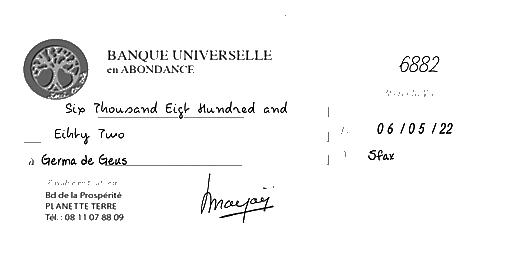 BANQUE UNIVERSELLE
en ABONDANCE
6882
Six Thousand Eigt Hundred and
Eihty Two
06/05/22
à Germa de Geus
Sfax
Bd de la Prospérité
PLANETTE TERRE
Tél. : 08 11 07 88 09